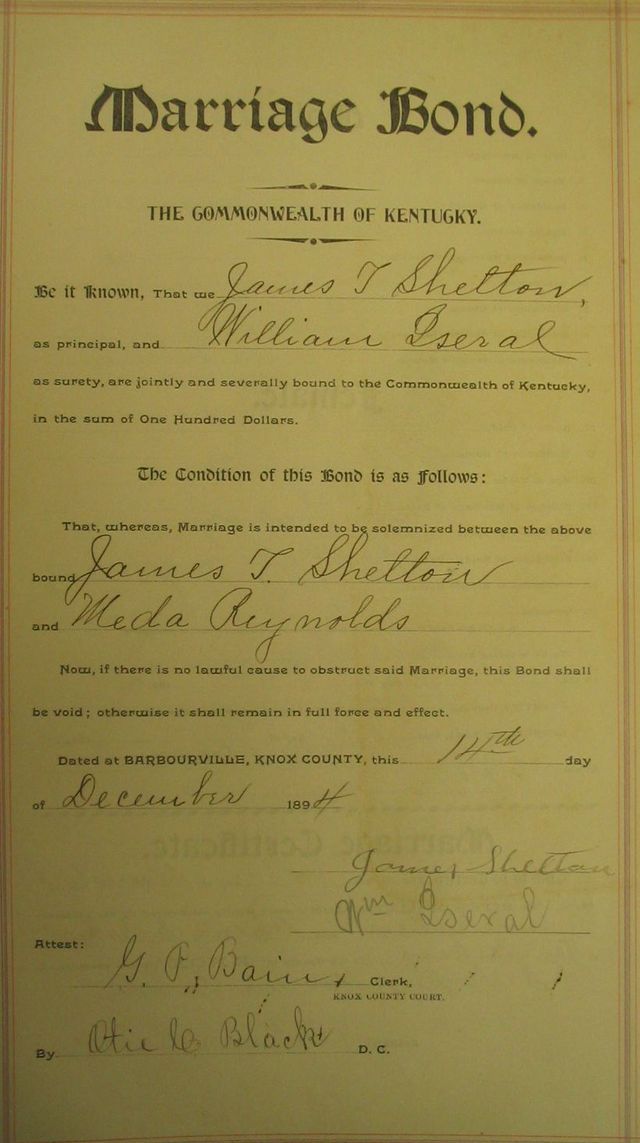 Marriage Bond.
THE COMMONWEALTH OF KENTUCKY.
Be it Known, That we James T Shelton,
as principal, and William Iseral
as surety, are jointly and severally bound to the Commonwealth of Kentucky,
in the sum of One Hundred Dollars.
The Condition of this Bond is as follows:
That, whereas, Marriage is intended to be solemnized between the above
bound James T. Shelton
and Meda Reynolds
Now, if there is no lawful cause to obstruct said Marriage, this Bond shall
be void; otherwise it shall remain in full force and effect.
Dated at BARBOURVILLE, KNOX COUNTY, this 14th day
of December 1894
James Shelton
Wm Iseral
Attest:
G. P. Bain, Clerk,
KNOX COUNTY COURT.
By Otie C Black D. C.